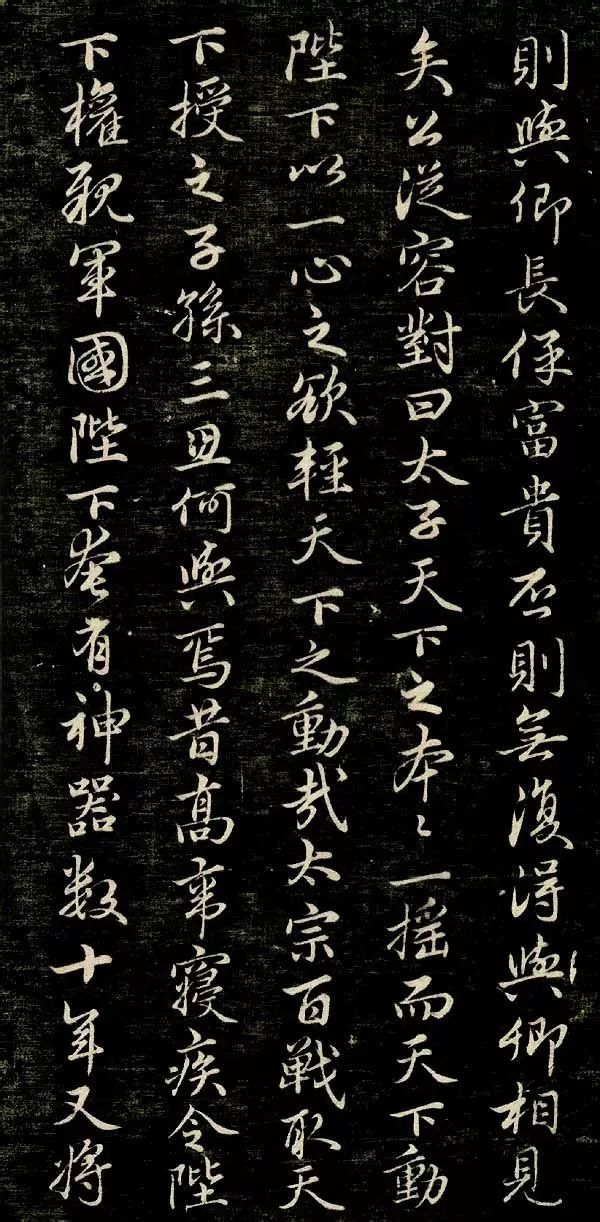 則與卿長保富貴否則無復得與卿相見
矣公從容對曰太子天下之本々一搖而天下動
陛下以一心之欲輕天下之動哉太宗百戰取天
下授之子孫三思何與焉昔高宗寢疾令陛
下權親軍國陛下奄有神器数十年又將